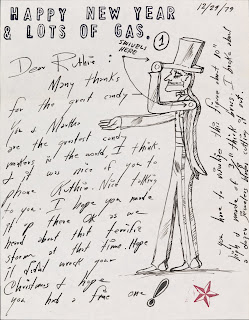 12/29/79
HAPPY NEW YEAR
& LOTS OF GAS.
SWIVELI
HERE
1
Dear Ruthie:
Many thanks
for the great candy
You & Martha
are the greatest candy
makers in the world, I think.
& it was nice of you to
phone Ruthie. Nice talking
to you. I hope you made
it up there OK as we
heard about that terrific
storm at that time. Hope
it didnt wreck your
Christmas & hope
you had a fine one!
- you have to visualize this figure about 10"
high & made of